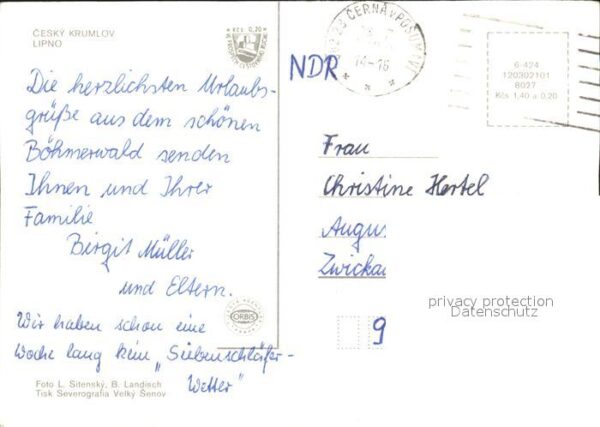 ČESKÝ KRUMLOV
LIPNO
Kčs 0,20
Die herzlichsten Urlaubs-
grüße aus dem schönen
Böhmerwald senden
Ihnen und Ihrer
Familie
Birgit Müller
und Eltern.
Wir haben schon eine
Woche lang kein „Siebenschläfer-
Wetter"
ORBIS
Foto L. Sitenský, B. Landisch
Tisk Severografia Velký Šenov
NDR
ČERNÁ V POŠUMAVÍ
14-16
6-424
120302101
8027
Kčs 1,40 a 0,20
Frau
Christine Hertel
Augu
Zwickau
9
privacy protection
Datenschutz